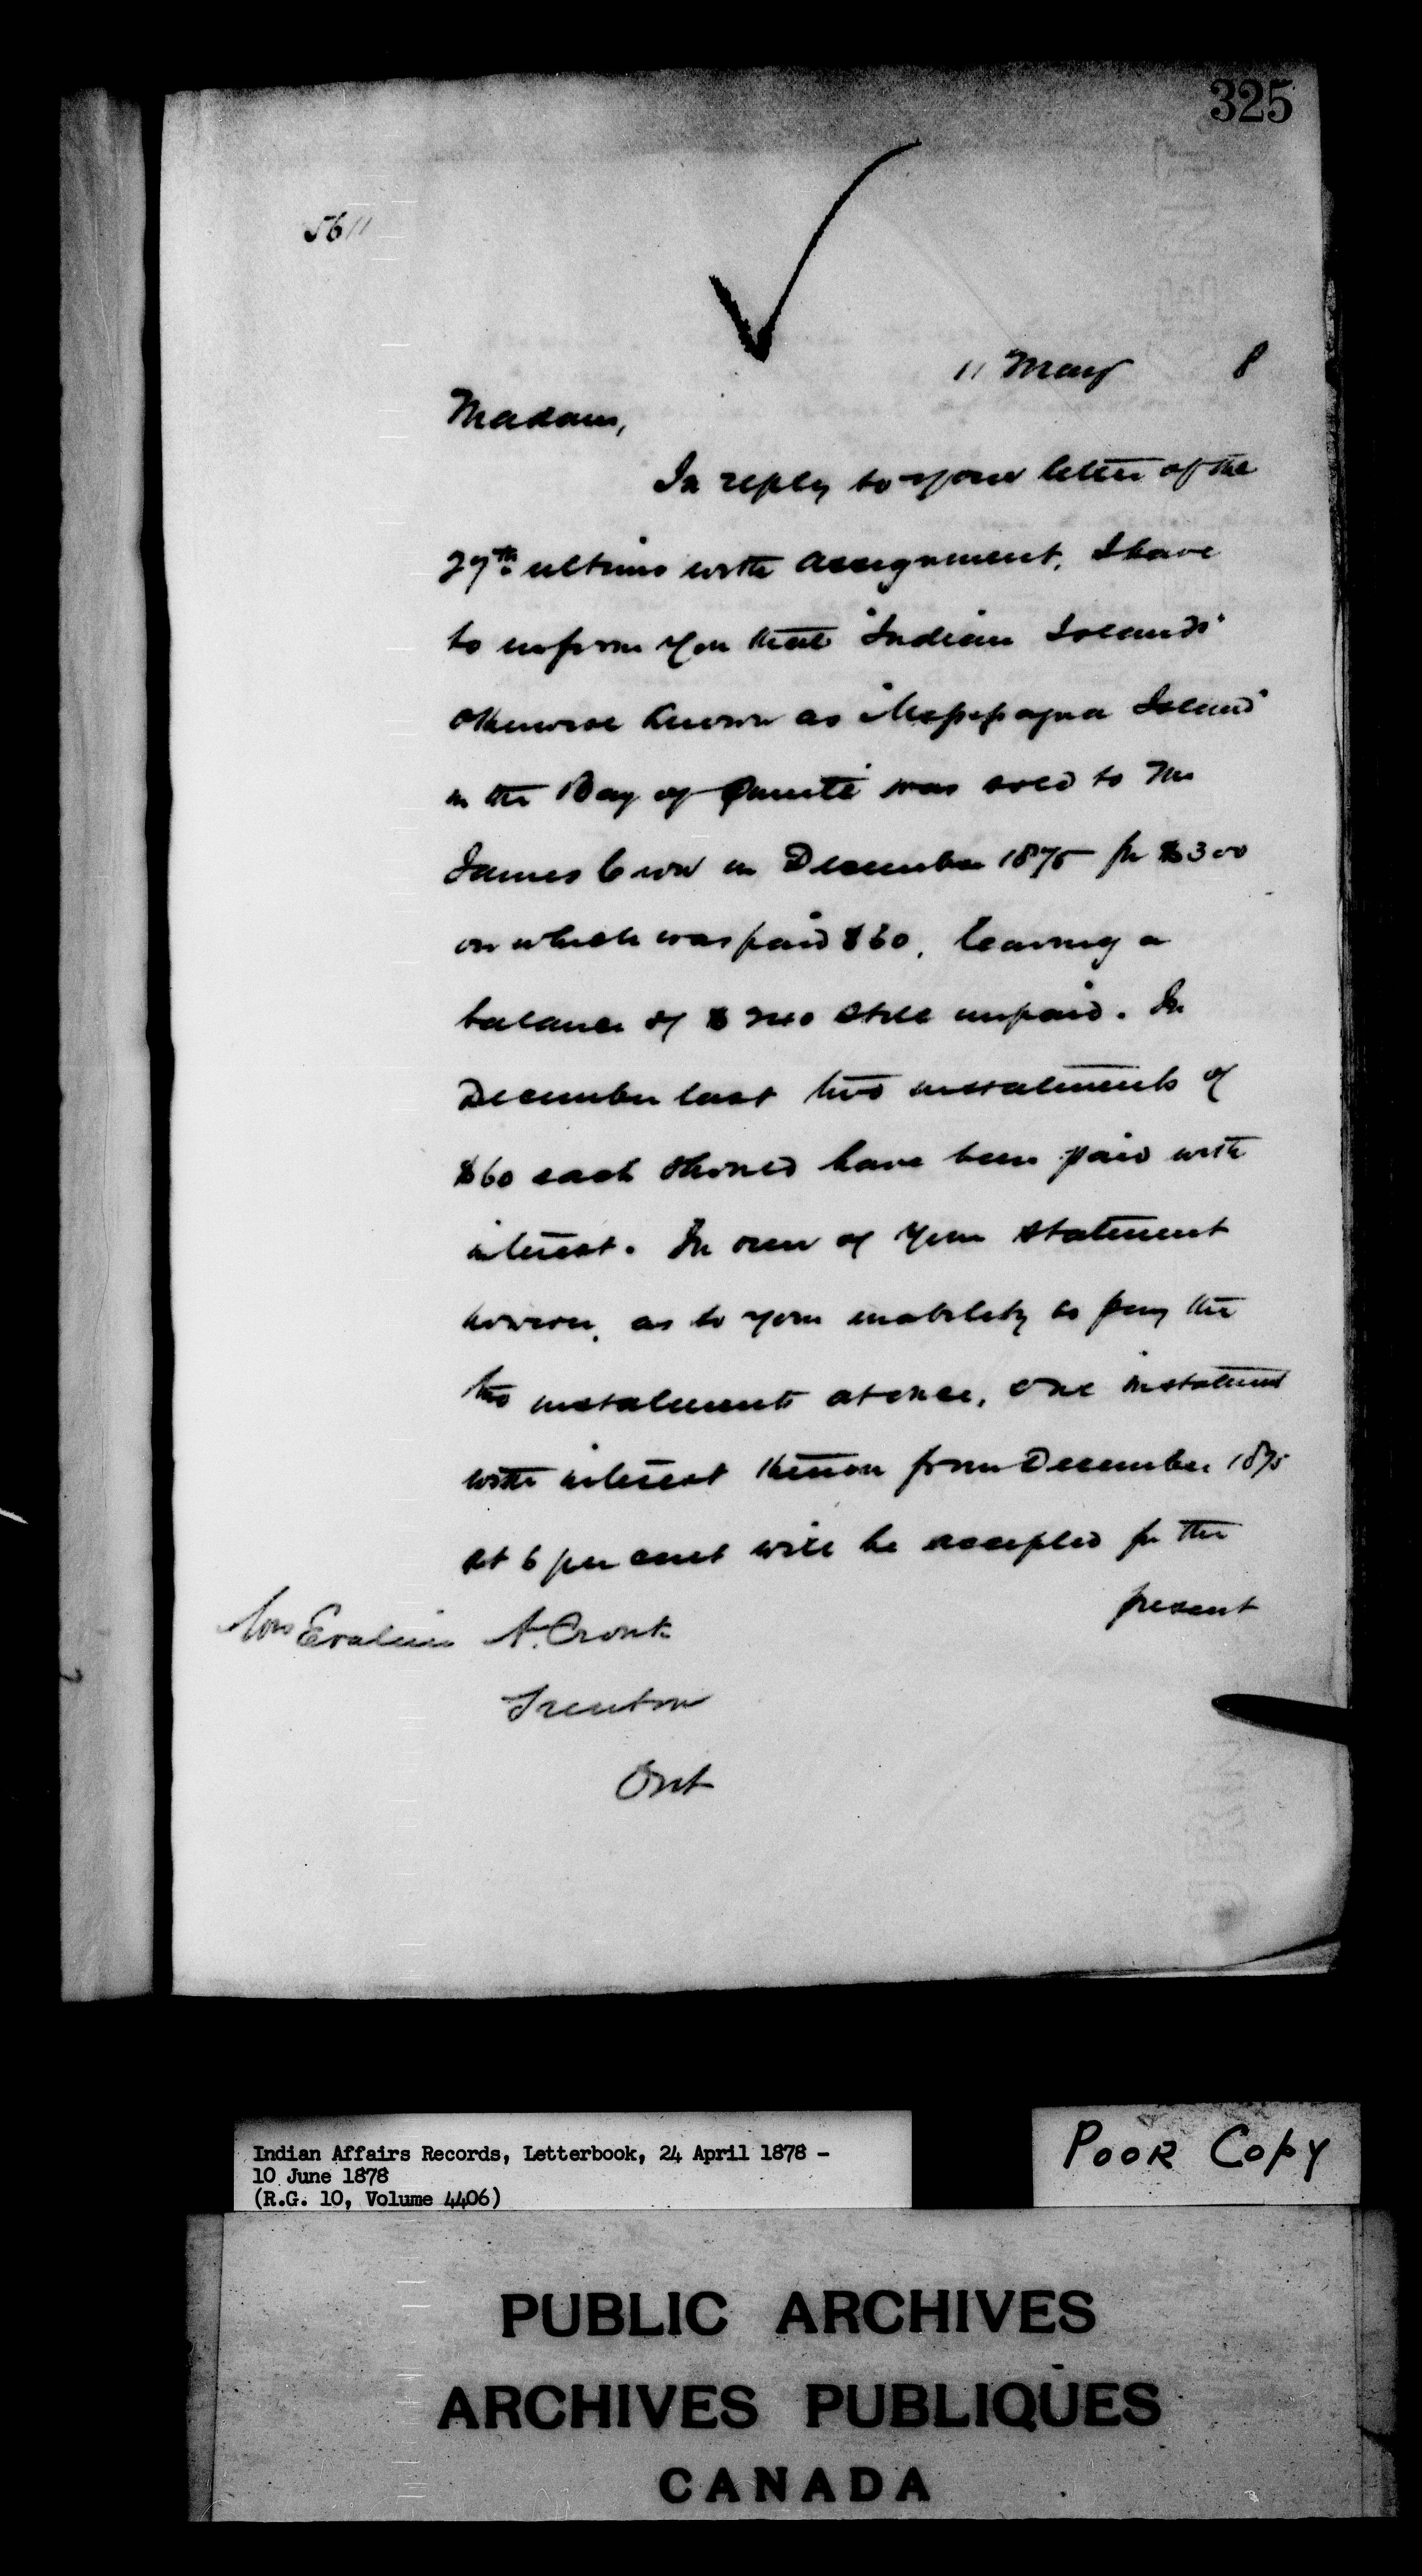 325
5611
11 May 8
Madam,
In reply to your letter of the
27th ultimo with assignment, I have
to inform you that "Indian Island"
otherwise known as Island"
in the Bay of Quinté was sold to Mr
James in December 1875 for $300
on which was paid $60, leaving a
balance of $240 still unpaid. In
December last two instalments of
$60 each should have been paid with
interest. In view of your statement
however, as to your inability to pay the
two instalments at once, one instalment
with interest thereon from December 1875
at 6 per cent will be accepted for the
present
Mrs Evaline A. Cronk
Trenton
Ont
Indian Affairs Records, Letterbook, 24 April 1878 -
10 June 1878
(R.G. 10, Volume 4406)
POOR COPY
PUBLIC ARCHIVES
ARCHIVES PUBLIQUES
CANADA